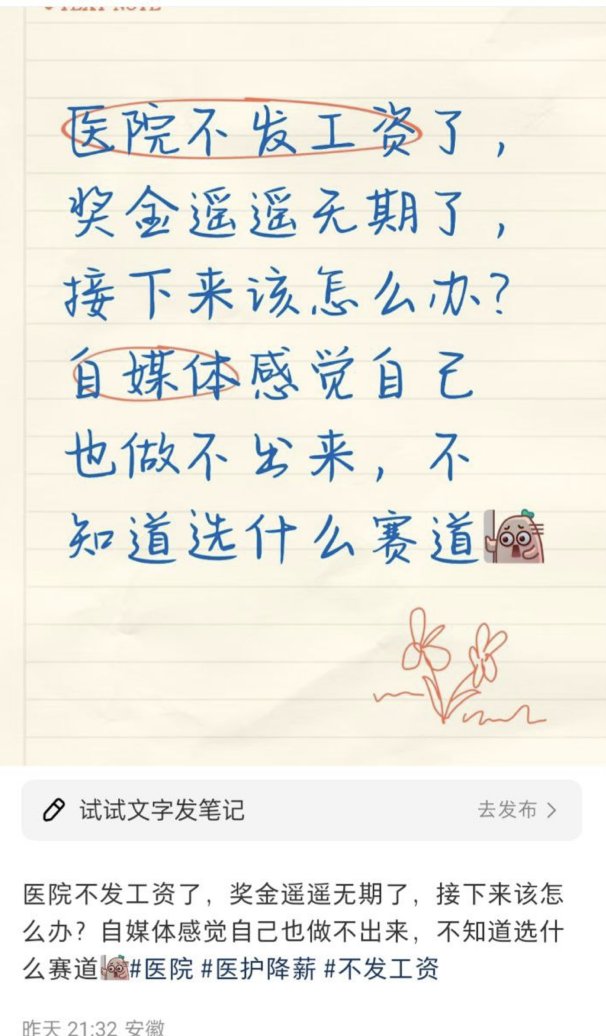 医院不发工资了，
奖金遥遥无期了，
接下来该怎么办？
自媒体感觉自己
也做不出来，不
知道选什么赛道
试试文字发笔记
去发布
医院不发工资了，奖金遥遥无期了，接下来该怎
么办？自媒体感觉自己也做不出来，不知道选什
么赛道#医院 #医护降薪 #不发工资
昨天 21:32 安徽